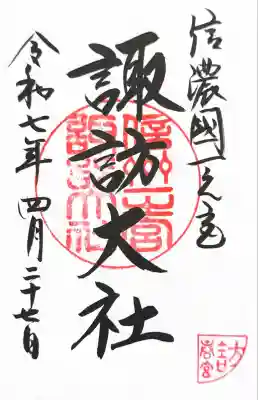 信濃國一之宮
諏訪大社
令和七年四月二十七日